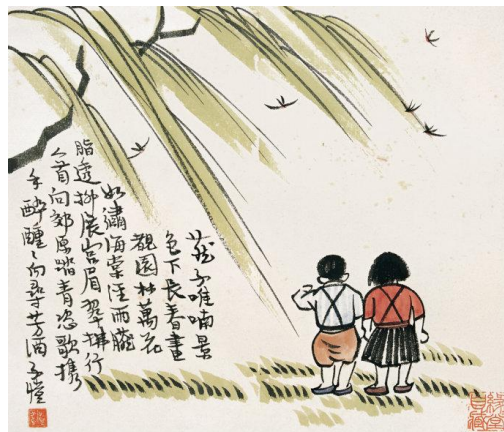 燕子呢喃景
色乍長春晝
覩園林萬花
如繡海棠經雨臙
脂透柳展宮眉翠拂行
人首向郊原踏青恣歌攜
手醉醺醺尚尋芳酒 子愷